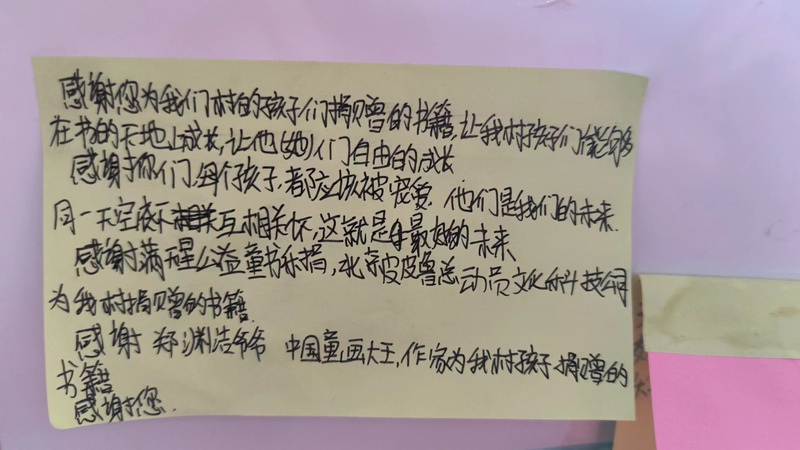 感谢您为我们村的孩子们捐赠的书籍,让我村孩子们能够
在书的天地上成长,让他(她)们自由的成长
感谢你们,每个孩子,都应该被宠爱.他们是我们的未来.
同一天空底下互相关怀,这就是最好的未来
感谢满天星公益童书乐捐,北京皮皮鲁总动员文化科技公司
为我村捐赠的书籍.
感谢 郑渊洁爷爷 中国童画大王,作家为我村孩子捐赠的
书籍
感谢您.